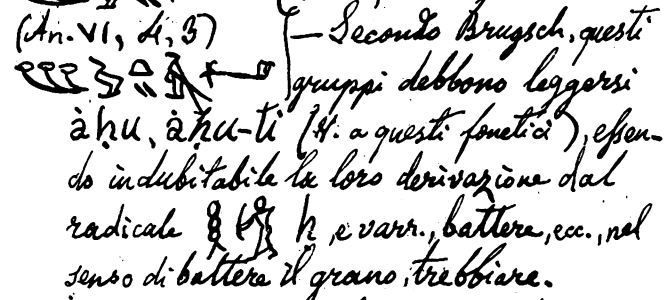 (An. VI, 4, 3) — Secondo Brugsch, questi
gruppi debbono leggersi
àḥu, àḥu-ti (V. a questi fonetici), essen-
do indubitabile la loro derivazione dal
radicale ḥ, e varr., battere, ecc., nel
senso di battere il grano, trebbiare.